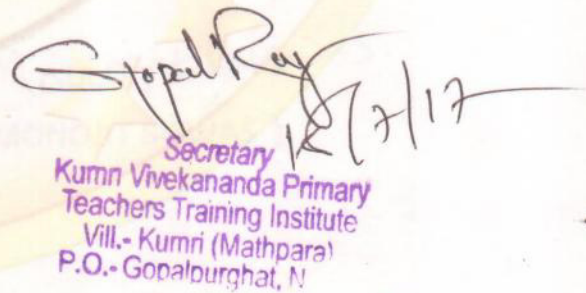 Gopal Roy
/7/17
Secretary
Kumri Vivekananda Primary
Teachers Training Institute
Vill.- Kumri (Mathpara)
P.O.- Gopalpurghat, N